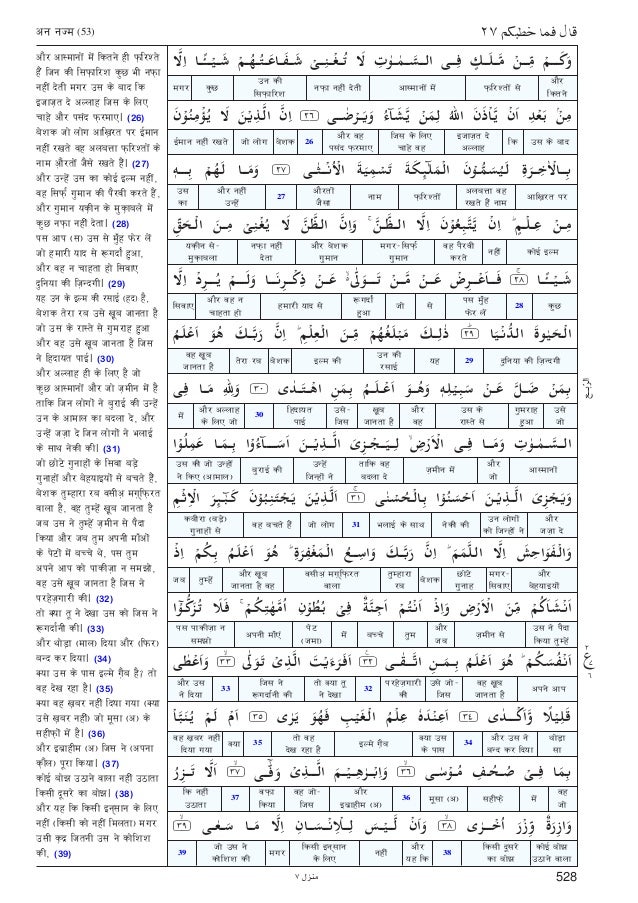 अन नज्म (53)
قال فما خطبكم ٢٧
और आस्मानों में कितने ही फ़रिश्ते
हैं जिन की सिफ़ारिश कुछ भी नफ़ा
नहीं देती मगर उस के बाद कि
इजाज़त दे अल्लाह जिस के लिए
चाहे और पसंद फ़रमाए। (26)
बेशक जो लोग आख़िरत पर ईमान
नहीं रखते वह अलबत्ता फ़रिश्तों के
नाम औरतों जैसे रखते हैं। (27)
और उन्हें उस का कोई इल्म नहीं,
वह सिर्फ़ गुमान की पैरवी करते हैं,
और गुमान यक़ीन के मुक़ाबले में
कुछ नफ़ा नहीं देता। (28)
पस आप (स) उस से मुँह फेर लें
जो हमारी याद से रूगर्दां हुआ,
और वह न चाहता हो सिवाए
दुनिया की ज़िन्दगी। (29)
यह उन के इल्म की रसाई (हद) है,
बेशक तेरा रब उसे ख़ूब जानता है
जो उस के रास्ते से गुमराह हुआ
और वह उसे ख़ूब जानता है जिस
ने हिदायत पाई। (30)
और अल्लाह ही के लिए है जो
कुछ आस्मानों और जो ज़मीन में है
ताकि जिन लोगों ने बुराई की उन्हें
उन के आमाल का बदला दे, और
उन्हें जज़ा दे जिन लोगों ने भलाई
के साथ नेकी की। (31)
जो छोटे गुनाहों के सिवा बड़े
गुनाहों और बेहयाइयों से बचते हैं,
बेशक तुम्हारा रब वसीअ़ मग़्फ़िरत
वाला है, वह तुम्हें ख़ूब जानता है
जब उस ने तुम्हें ज़मीन से पैदा
किया और जब तुम अपनी माँओं
के पेटों में बच्चे थे, पस तुम
अपने आप को पाकीज़ा न समझो,
वह उसे ख़ूब जानता है जिस ने
परहेज़गारी की। (32)
तो क्या तू ने देखा उस को जिस ने
रूगर्दानी की। (33)
और थोड़ा (माल) दिया और (फिर)
बन्द कर दिया। (34)
क्या उस के पास इल्मे ग़ैब है? तो
वह देख रहा है। (35)
क्या वह ख़बर नहीं दिया गया (क्या
उसे ख़बर नहीं) जो मूसा (अ) के
सहीफ़ों में है। (36)
और इब्राहीम (अ) जिस ने (अपना
क़ौल) पूरा किया। (37)
कोई बोझ उठाने वाला नहीं उठाता
किसी दूसरे का बोझ। (38)
और यह कि किसी इन्सान के लिए
नहीं (किसी को नहीं मिलता) मगर
उसी क़द्र जितनी उस ने कोशिश
की, (39)
وَكَمْ مِّنْ مَّلَكٍ فِى السَّمٰوٰتِ لَا تُغْنِىْ شَفَاعَتُهُمْ شَيْـًٔا اِلَّا
और कितने फ़रिश्तों से आस्मानों में नफ़ा नहीं देती उन की सिफ़ारिश कुछ मगर
مِنْۢ بَعْدِ اَنْ يَّاْذَنَ اللّٰهُ لِمَنْ يَّشَآءُ وَيَرْضٰى ٢٦ اِنَّ الَّذِيْنَ لَا يُؤْمِنُوْنَ
उस के बाद कि इजाज़त दे अल्लाह जिस के लिए चाहे वह और वह पसंद फ़रमाए 26 बेशक जो लोग ईमान नहीं रखते
بِالْاٰخِرَةِ لَيُسَمُّوْنَ الْمَلٰٓئِكَةَ تَسْمِيَةَ الْاُنْثٰى ٢٧ وَمَا لَهُمْ بِهٖ
आख़िरत पर अलबत्ता वह रखते हैं नाम फ़रिश्तों नाम औरतों जैसा 27 और नहीं उन्हें उस का
مِنْ عِلْمٍ ؕ اِنْ يَّتَّبِعُوْنَ اِلَّا الظَّنَّ ۚ وَاِنَّ الظَّنَّ لَا يُغْنِىْ مِنَ الْحَقِّ
कोई इल्म नहीं वह पैरवी करते मगर-सिर्फ़ गुमान और बेशक गुमान नफ़ा नहीं देता यक़ीन से - मुक़ाबला
شَيْـًٔا ٢٨ فَاَعْرِضْ عَنْ مَّنْ تَوَلّٰى عَنْ ذِكْرِنَا وَلَمْ يُرِدْ اِلَّا
कुछ 28 पस मुँह फेर लें से जो रूगर्दां हुआ हमारी याद से और वह न चाहता हो सिवाए
الْحَيٰوةَ الدُّنْيَا ٢٩ ذٰلِكَ مَبْلَغُهُمْ مِّنَ الْعِلْمِ ؕ اِنَّ رَبَّكَ هُوَ اَعْلَمُ
दुनिया की ज़िन्दगी 29 यह उन की रसाई इल्म की बेशक तेरा रब वह ख़ूब जानता है
بِمَنْ ضَلَّ عَنْ سَبِيْلِهٖ وَهُوَ اَعْلَمُ بِمَنِ اهْتَدٰى ٣٠ وَلِلّٰهِ مَا فِى
उसे जो गुमराह हुआ उस के रास्ते से और वह ख़ूब जानता उसे-जिस हिदायत पाई 30 और अल्लाह के लिए जो में
السَّمٰوٰتِ وَمَا فِى الْاَرْضِ ۙ لِيَجْزِىَ الَّذِيْنَ اَسَآءُوْا بِمَا عَمِلُوْا
आस्मानों और जो ज़मीन में ताकि वह बदला दे उन्हें जिन्हों ने बुराई की उस की जो उन्हों ने किए (आमाल)
وَيَجْزِىَ الَّذِيْنَ اَحْسَنُوْا بِالْحُسْنٰى ٣١ اَلَّذِيْنَ يَجْتَنِبُوْنَ كَبٰٓئِرَ الْاِثْمِ
और जज़ा दे उन लोगों को जिन्हों ने नेकी की भलाई के साथ 31 जो लोग वह बचते हैं कबीरा (बड़े) गुनाहों से
وَالْفَوَاحِشَ اِلَّا اللَّمَمَ ؕ اِنَّ رَبَّكَ وَاسِعُ الْمَغْفِرَةِ ؕ هُوَ اَعْلَمُ بِكُمْ اِذْ
और बेहयाइयों मगर-सिवाए छोटे गुनाह बेशक तुम्हारा रब वसीअ़ मग़्फ़िरत वाला और ख़ूब जानता है वह तुम्हें जब
اَنْشَاَكُمْ مِّنَ الْاَرْضِ وَاِذْ اَنْتُمْ اَجِنَّةٌ فِىْ بُطُوْنِ اُمَّهٰتِكُمْ ۚ فَلَا تُزَكُّوْٓا
उस ने पैदा किया तुम्हें ज़मीन से और जब तुम बच्चे में पेट (जमा) अपनी माँएं पस पाकीज़ा न समझो
اَنْفُسَكُمْ ؕ هُوَ اَعْلَمُ بِمَنِ اتَّقٰى ٣٢ اَفَرَءَيْتَ الَّذِىْ تَوَلّٰى ٣٣ وَاَعْطٰى
अपने आप वह ख़ूब जानता है उसे जो-जिस परहेज़गारी की 32 तो क्या तू ने देखा जिस ने रूगर्दानी की 33 और उस ने दिया
قَلِيْلًا وَّاَكْدٰى ٣٤ اَعِنْدَهٗ عِلْمُ الْغَيْبِ فَهُوَ يَرٰى ٣٥ اَمْ لَمْ يُنَبَّاْ
थोड़ा सा और उस ने बन्द कर दिया 34 क्या उस के पास इल्मे ग़ैब तो वह देख रहा है 35 क्या वह ख़बर नहीं दिया गया
بِمَا فِىْ صُحُفِ مُوْسٰى ٣٦ وَاِبْرٰهِيْمَ الَّذِىْ وَفّٰىٓ ٣٧ اَلَّا تَزِرُ
वह जो में सहीफ़े मूसा (अ) 36 और इब्राहीम (अ) वह जो-जिस वफ़ा किया 37 कि नहीं उठाता
وَازِرَةٌ وِّزْرَ اُخْرٰى ٣٨ وَاَنْ لَّيْسَ لِلْاِنْسَانِ اِلَّا مَا سَعٰى ٣٩
कोई बोझ उठाने वाला किसी दूसरे का बोझ 38 और यह कि नहीं किसी इन्सान के लिए मगर जो उस ने कोशिश की 39
٢
ع
٦
منزل ٧
528